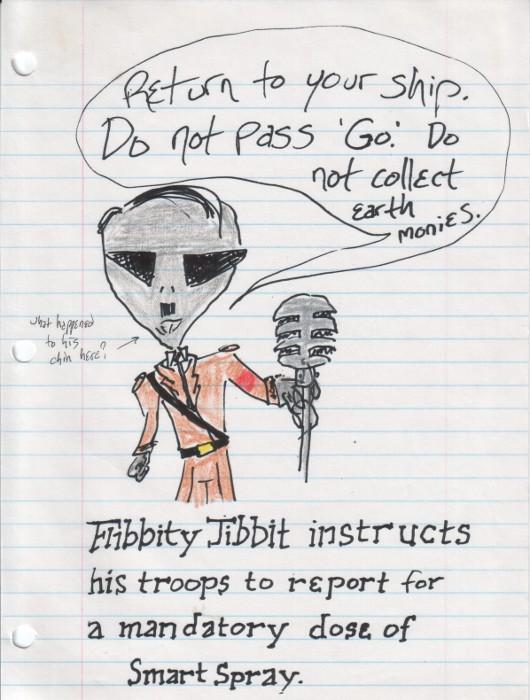 Return to your ship.
Do not pass 'Go.' Do
not collect
earth
monies.
what happened
to his
chin here?
Flibbity Jibbit instructs
his troops to report for
a mandatory dose of
Smart Spray.